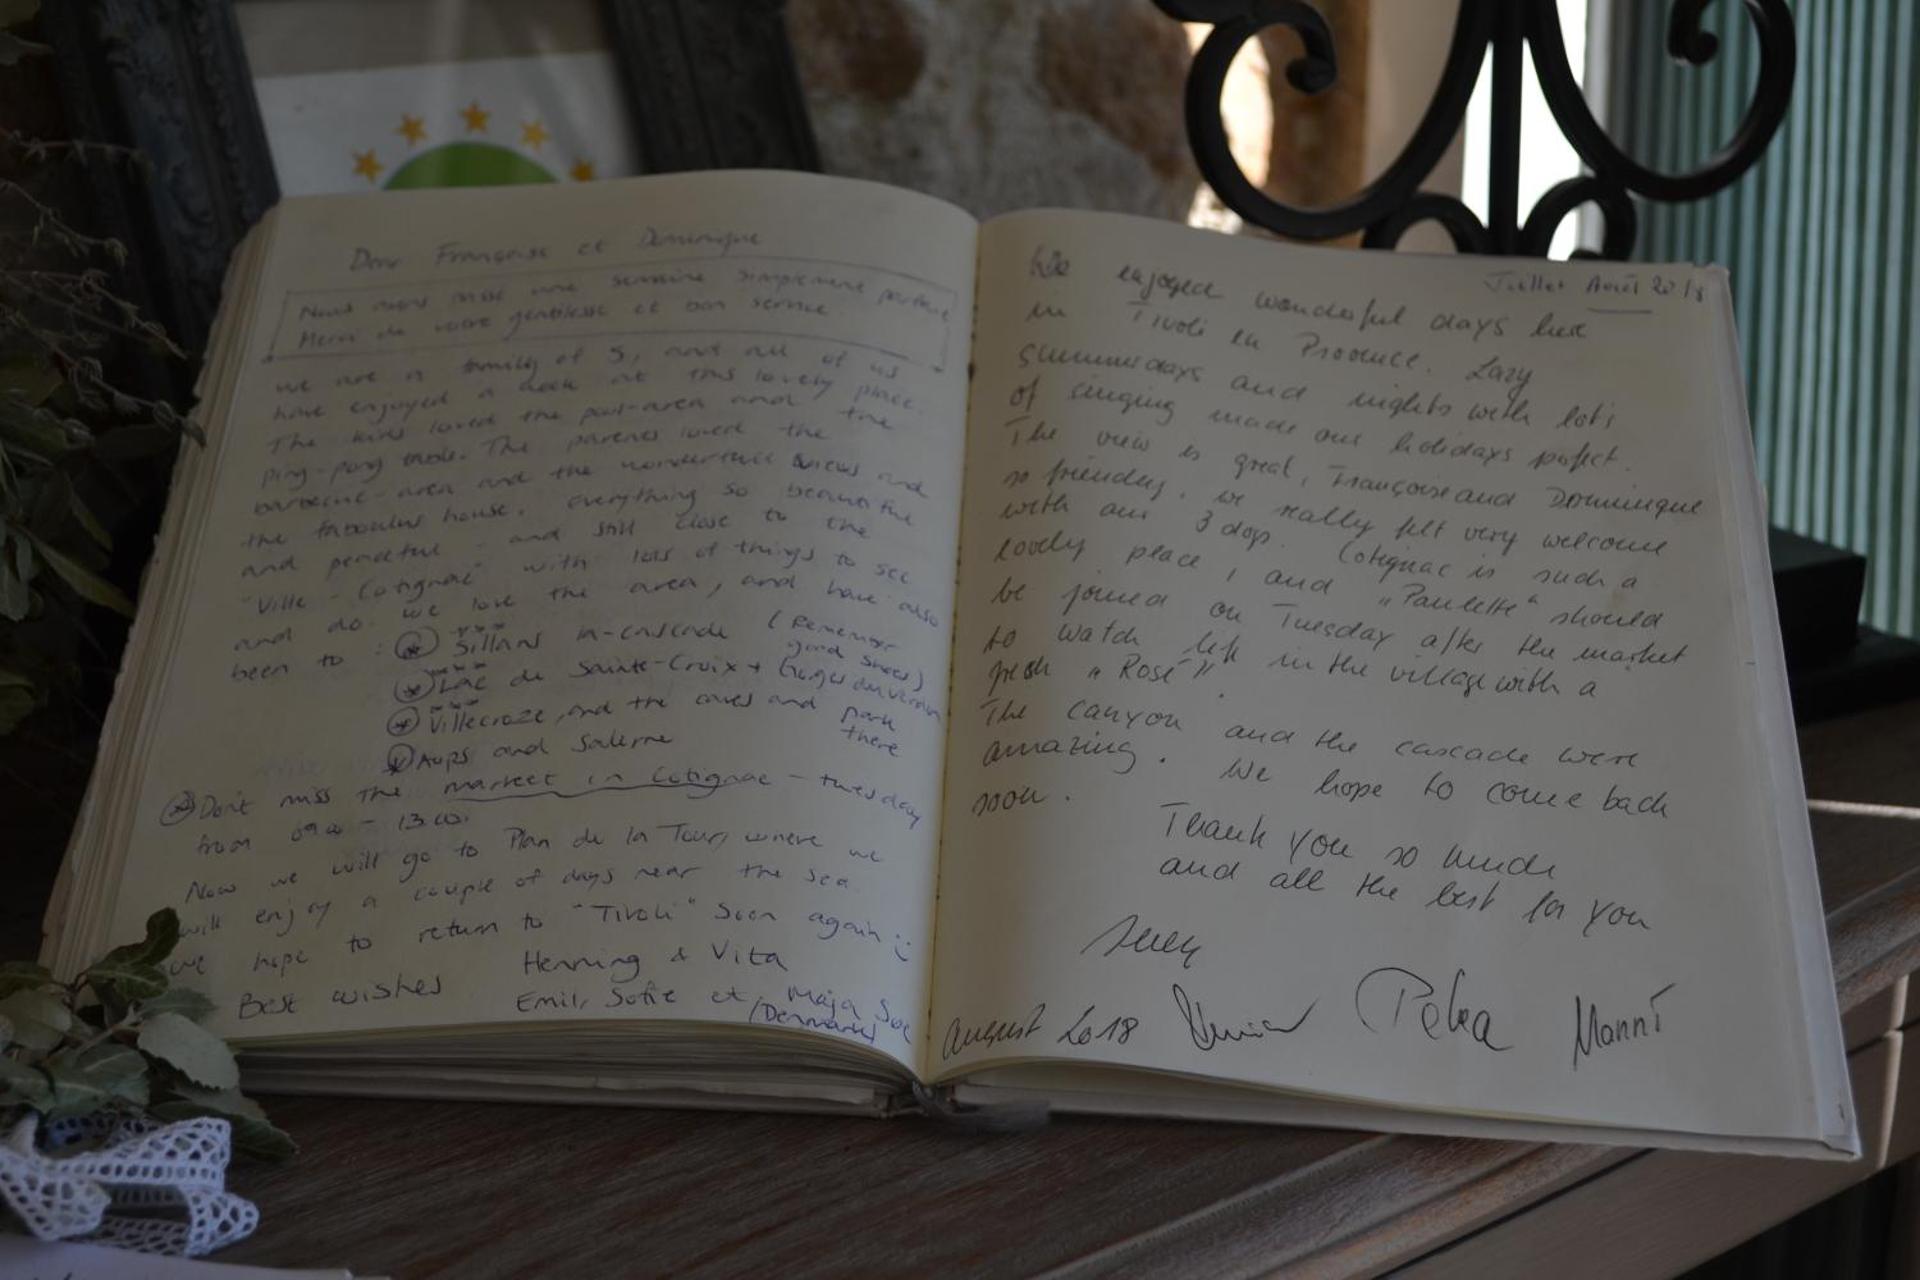 Dear Françoise et Dominique
Nous avons passé une semaine simplement parfaite
Merci de votre gentilesse et bon service
we are a family of 5, and all of us
have enjoyed a week at this lovely place.
The kids loved the pool-area and the
ping-pong table. The parents loved the
barbecue-area and the wonderfull views and
the faboulus house. Everything so beautiful
and peacefull - and still close to the
"Ville - Cotignac" with lots of things to see
and do. we love the area, and have also
been to : Sillans la-cascade (Remember
good shoes)
Lac de Sainte-Croix + Gorges du Verdon
Villecroze, and the caves and park
there
Aups and Salerne
Don't miss the market in Cotignac - tuesday
from 09.00 - 13.00.
Now we will go to Plan de la Tour, where we
will enjoy a couple of days near the sea.
we hope to return to "Tivoli" soon again :)
Best wishes Henning & Vita
Emil, Sofie et Maja
(Denmark)
Juillet Août 2018
We enjoyed wonderful days here
in Tivoli en Provence. Lazy
summerdays and nights with lot's
of singing made our holidays pefect.
The view is great, Françoise and Dominique
so friendly. we really felt very welcome
with our 3 dogs. Cotignac is such a
lovely place, and „Paulette“ should
be joined on Tuesday after the market
to watch life in the village with a
fresh „Rosé“.
The canyon and the cascade were
amazing. We hope to come back
soon.
Thank you so much
and all the best for you
August 2018 Petra Manni